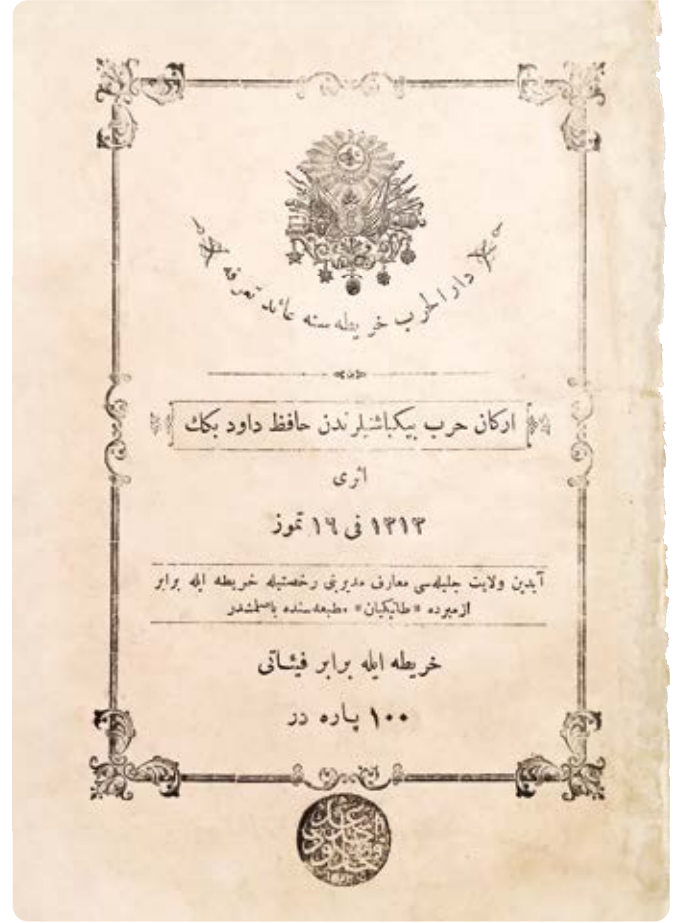 دار الحرب خريطه سنه عائد تعرفه
اركان حرب بيكباشيلرندن حافظ داود بكك
اثرى
١٣١٣ فى ١٦ تموز
آيدين ولايت جليله‌سى معارف مديريتى رخصتيله خريطه ايله برابر
ازميرده «طاتيكيان» مطبعه‌سنده باصلمشدر
خريطه ايله برابر فيئاتى
١٠٠ پاره در